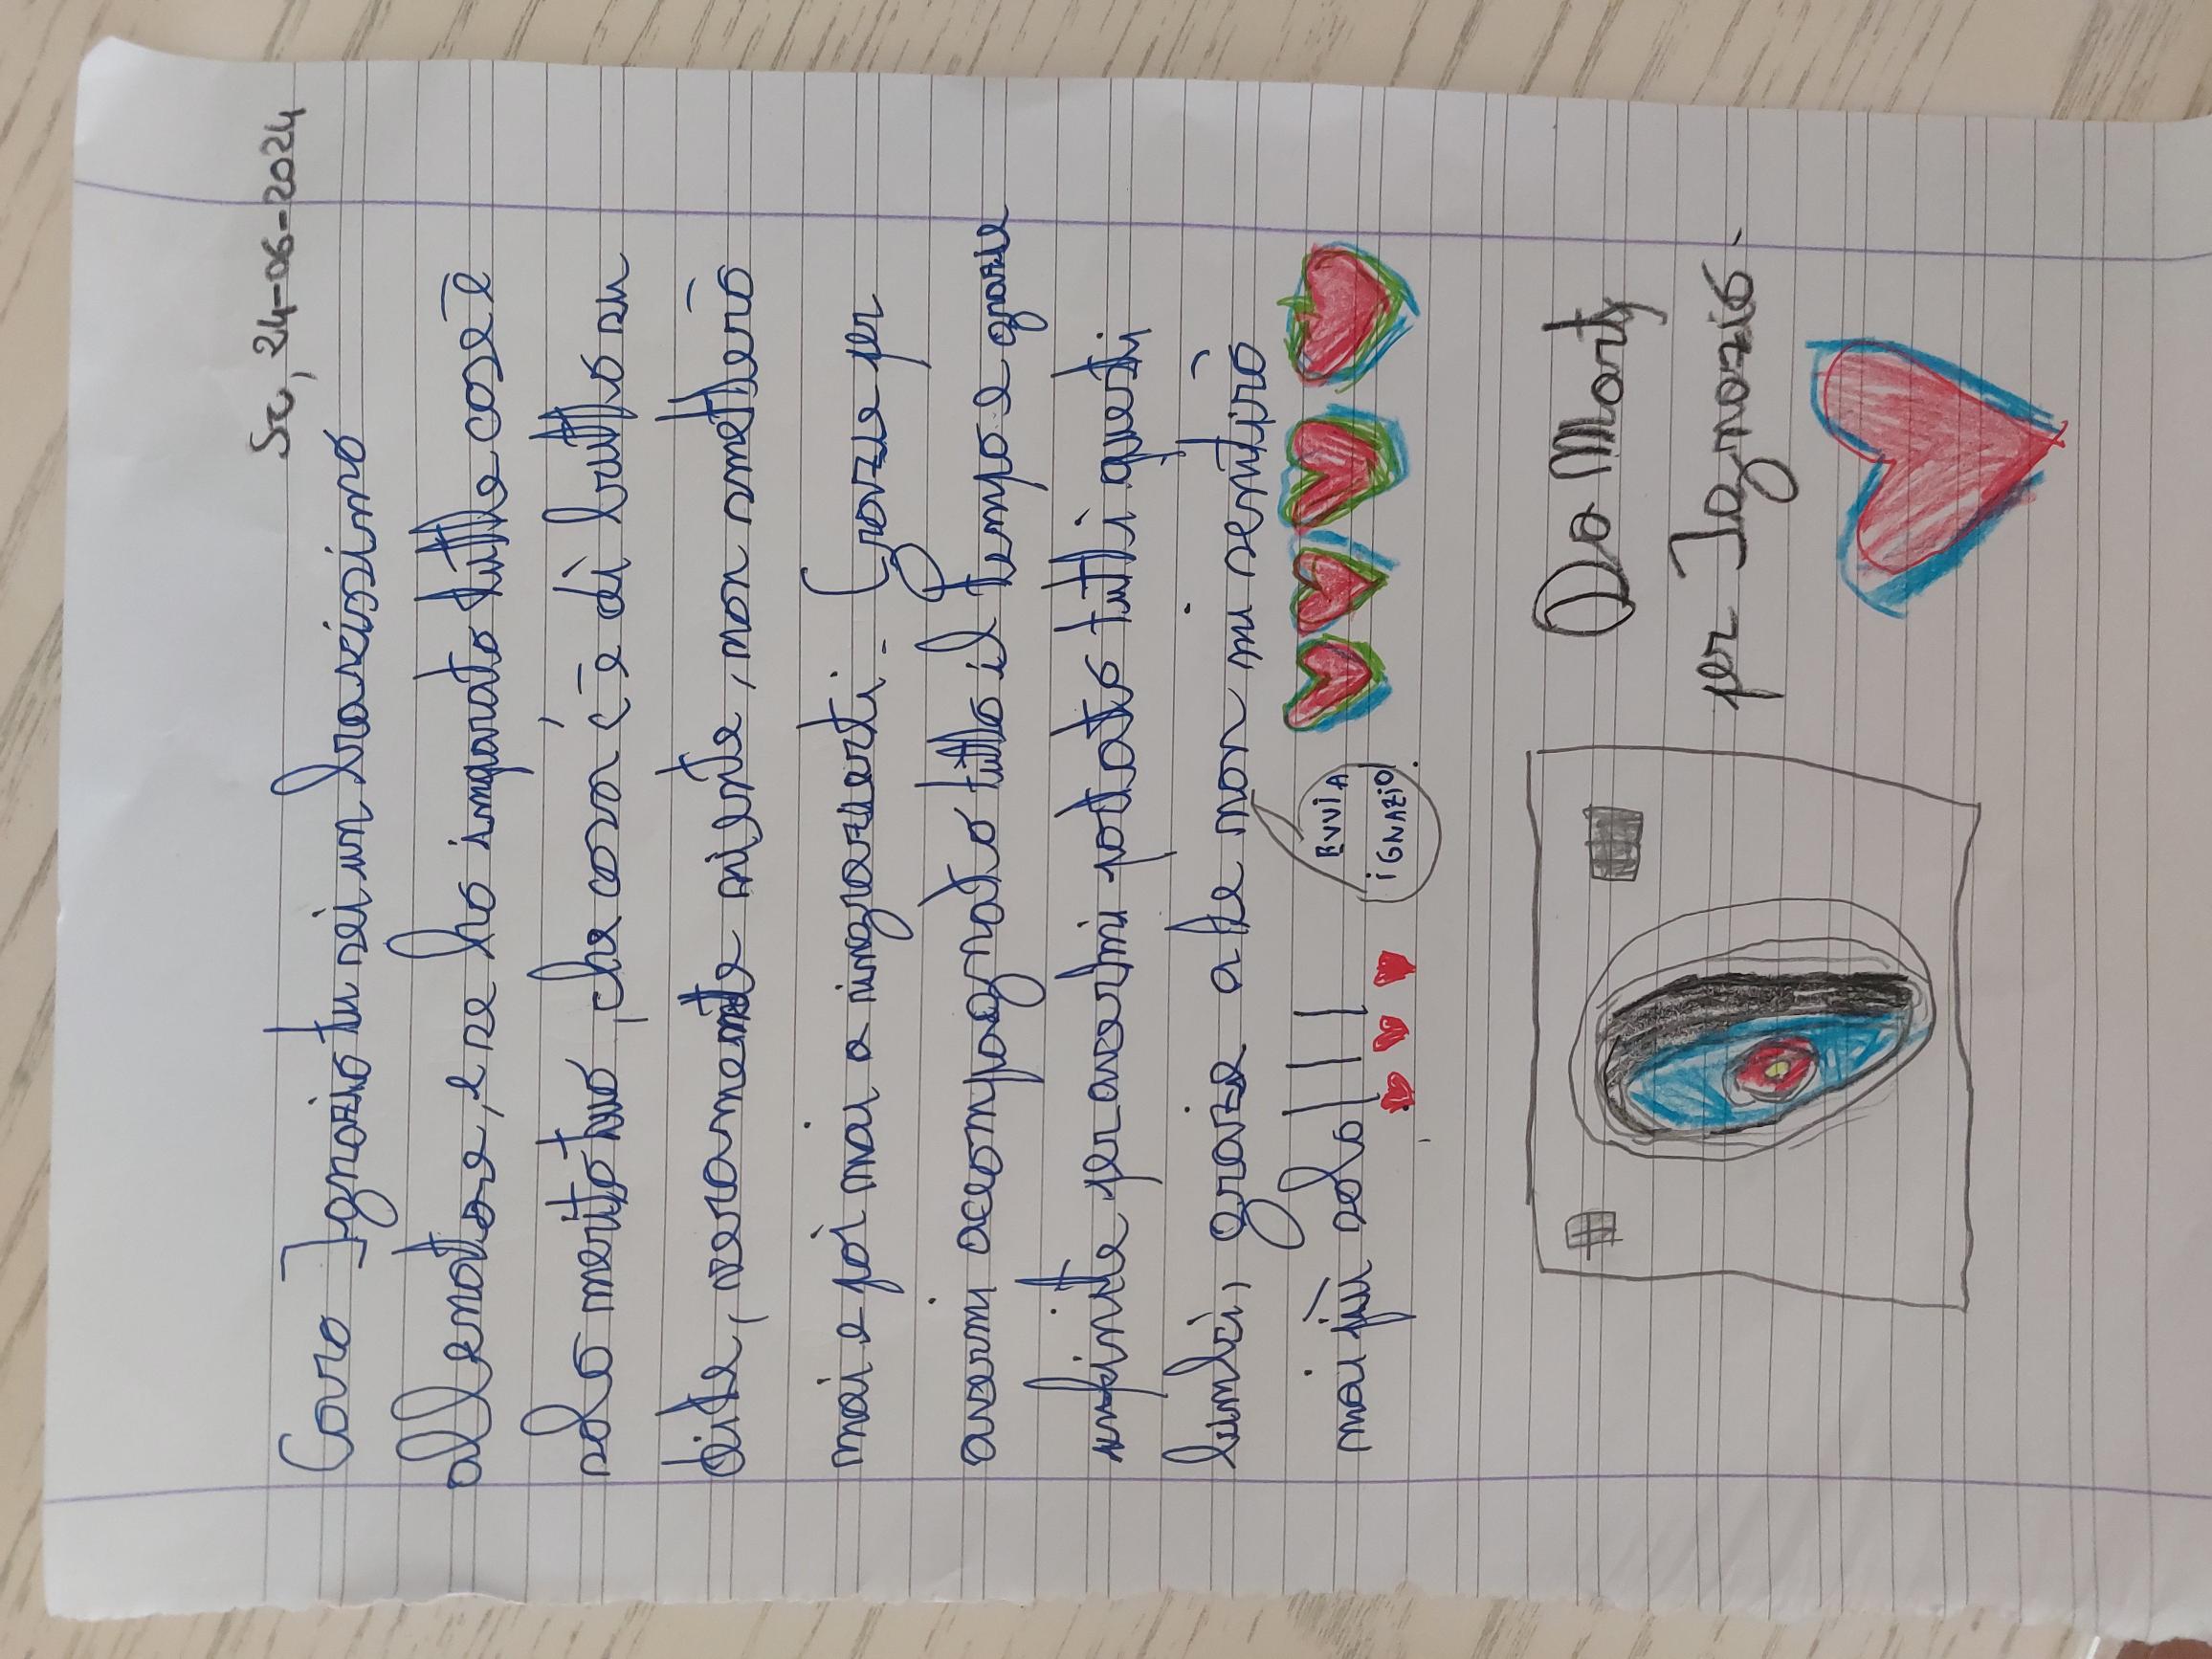 Sc, 24-06-2024
Caro Ignazio tu sei un bravissimo
allenatore, e se ho imparato tutte cose è
solo merito tuo, che cosa c'è di brutto su
dite, veramente niente, non smetterò
mai e poi mai a ringraziarti. Grazie per
avermi accompagnato tutto il tempo e grazie
infinite per avermi portato tutti questi
bimbi, grazie a te non mi sentirò
mai più solo!!!
EVVIA
IGNAZIO!
Da Marty
per Ignazio.